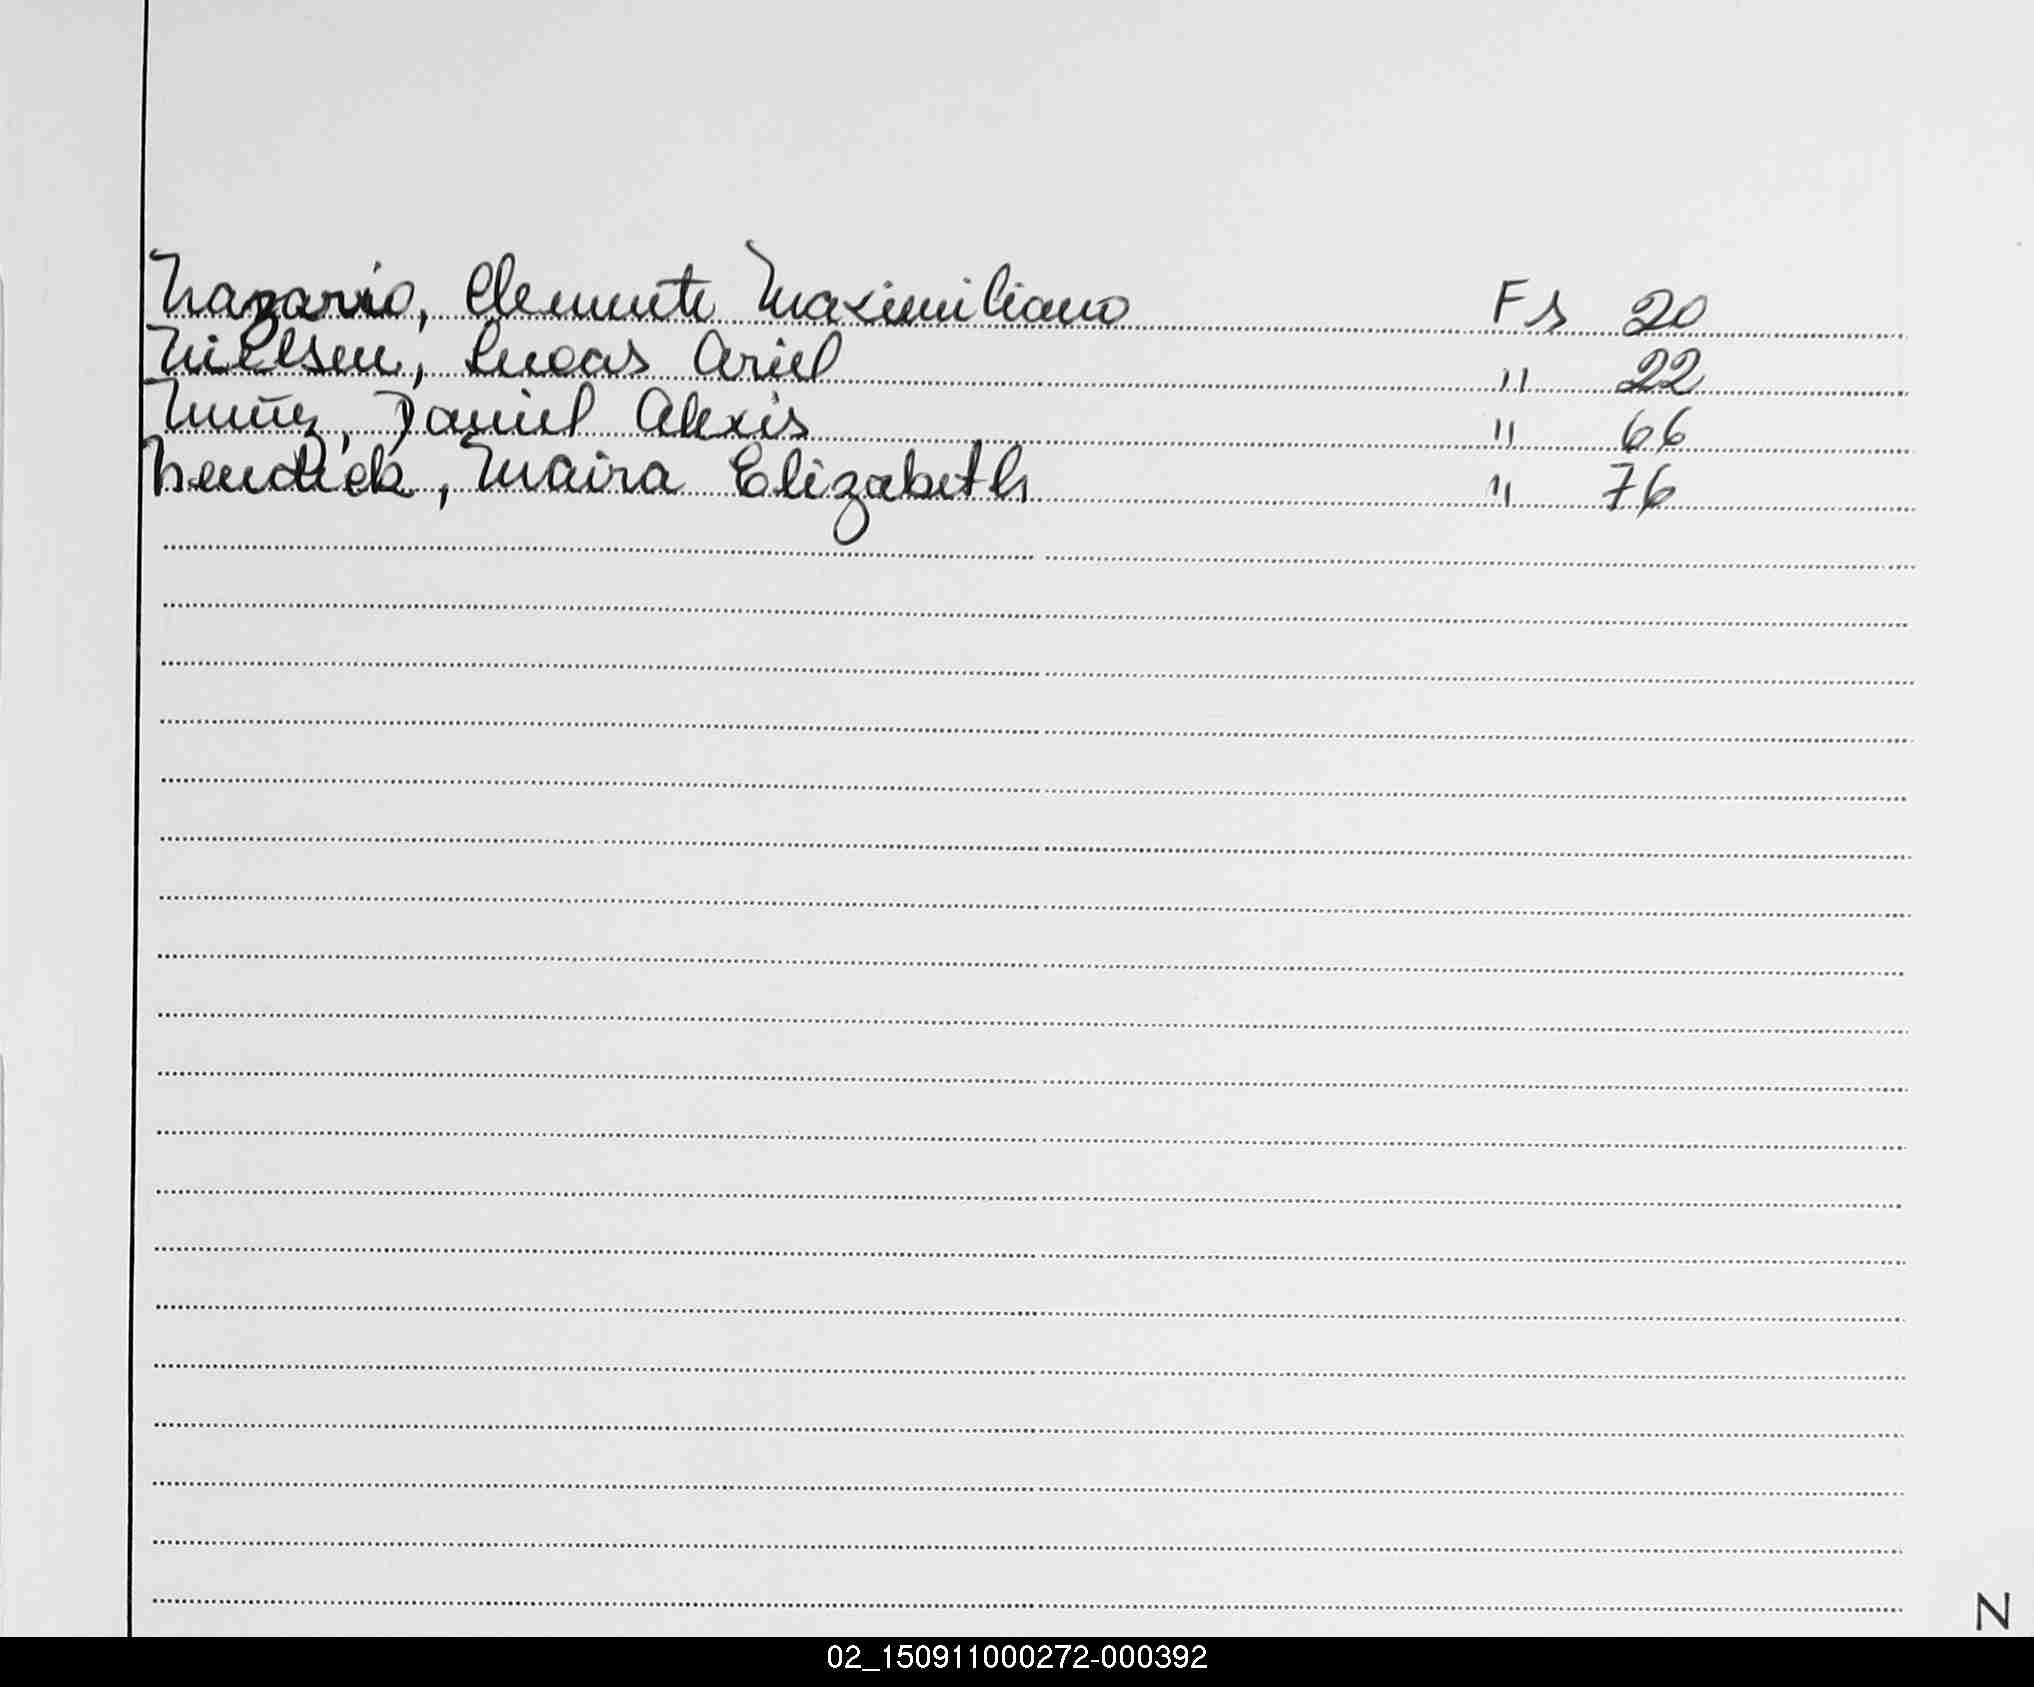 Nazario, Clemente Maximiliano Fs 20
Nielsen, Lucas Ariel " 22
Daniel Alexis " 66
Nendick, Maira Elizabeth " 76
N
02_150911000272-000392